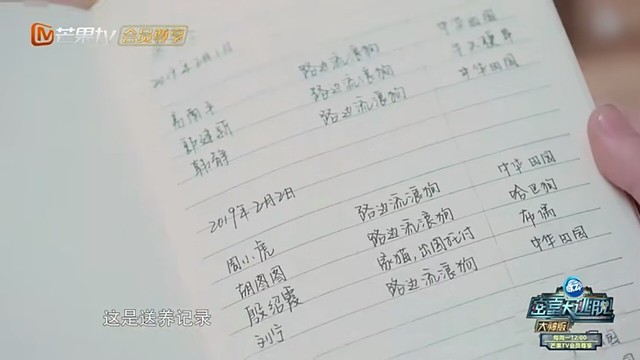 芒果TV 会员尊享
2019年2月1日
路边流浪狗 中华田园
路边流浪狗
韩静 路边流浪狗 中华田园
2019年2月2日
周小虎 路边流浪狗 中华田园
胡图图 路边流浪狗 哈巴狗
殷绍霞 家猫,出国托付 布偶
刘宁 路边流浪狗 中华田园
这是送养记录
密室大逃脱
大师版
每周一12:00
芒果TV会员尊享